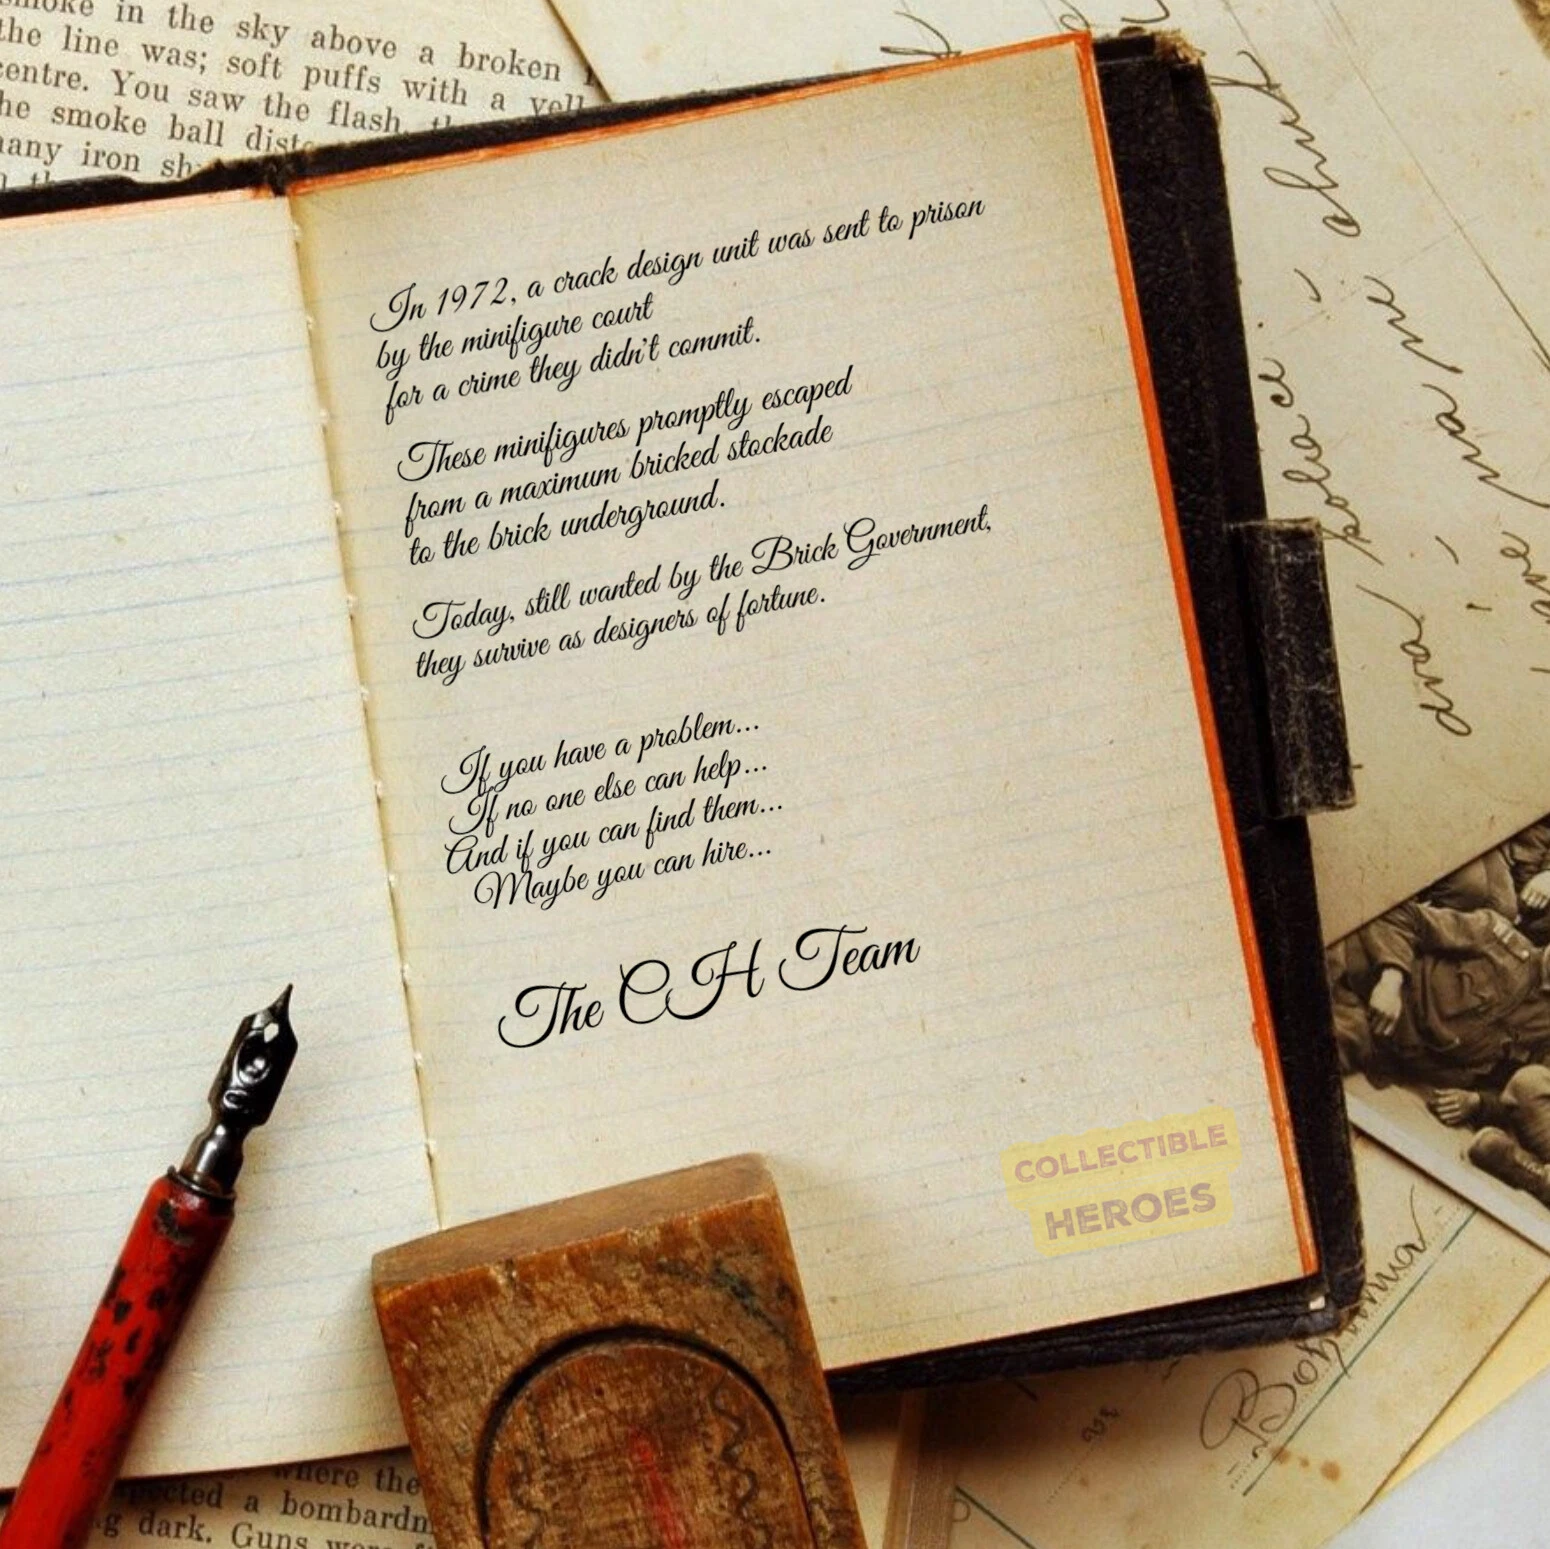 smoke in the sky above a broken
the line was; soft puffs with a
centre. You saw the flash,
the smoke ball
many iron
In 1972, a crack design unit was sent to prison
by the minifigure court
for a crime they didn't commit.
These minifigures promptly escaped
from a maximum bricked stockade
to the brick underground.
Today, still wanted by the Brick Government,
they survive as designers of fortune.
If you have a problem...
If no one else can help...
And if you can find them...
Maybe you can hire...
The CH Team
COLLECTIBLE
HEROES
where the
a bombardm
dark. Guns were